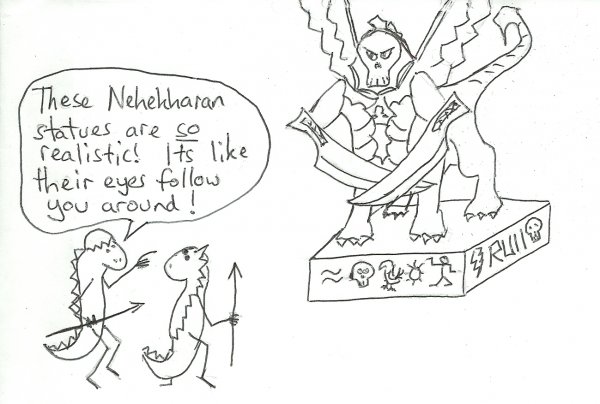 These Nehekharan
statues are so
realistic! Its like
their eyes follow
you around!
RUII